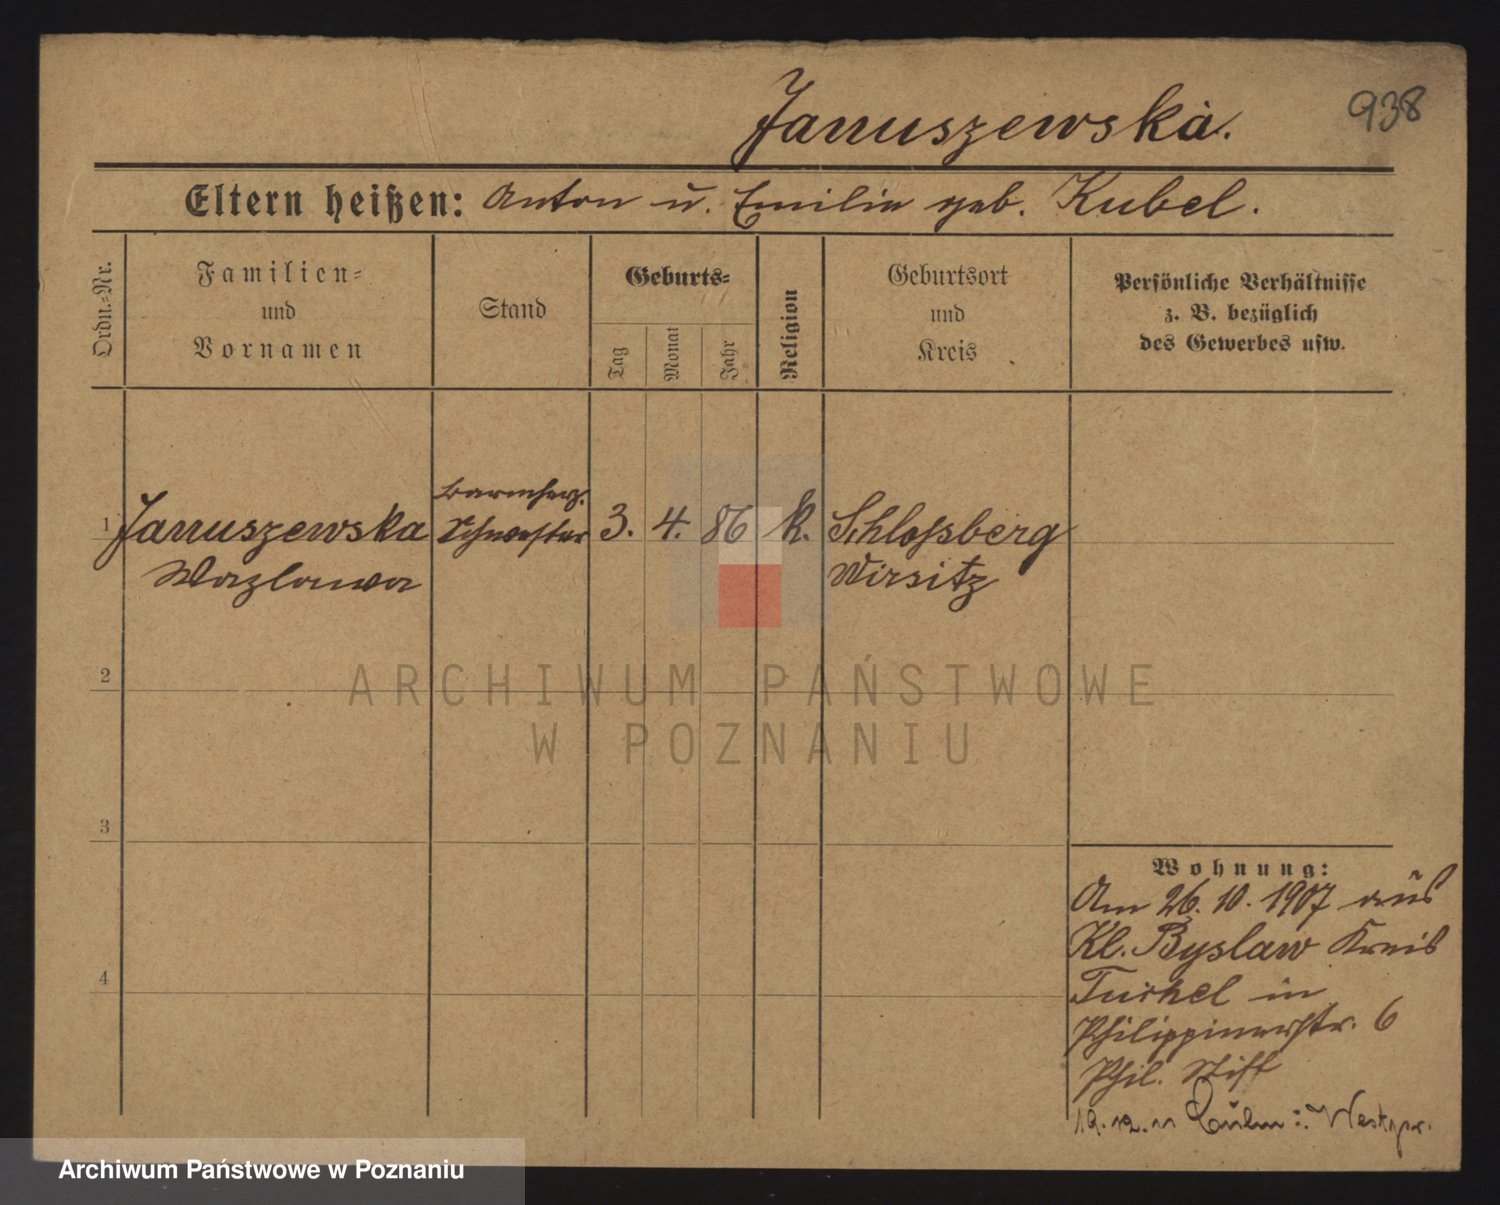 938
Januszewska.
Eltern heißen: Anton u. Emilie geb. Kubel.
Ordn.-Nr.
Familien-
und
Vornamen
Stand
Geburts-
Tag
Monat
Jahr
Religion
Geburtsort
und
Kreis
Persönliche Verhältnisse
z. B. bezüglich
des Gewerbes usw.
1 Januszewska barmherz. Schwester 3. 4. 86 k. Schloßberg
Wazlawa Wirsitz
2
3
4
Wohnung:
Am 26.10.1907 aus
Kl. Byslaw Kreis
Tuchel in
Philippinerstr. 6
Phil. Stift
19.12.11 Culm i. Westpr.
ARCHIWUM PAŃSTWOWE
W POZNANIU
Archiwum Państwowe w Poznaniu